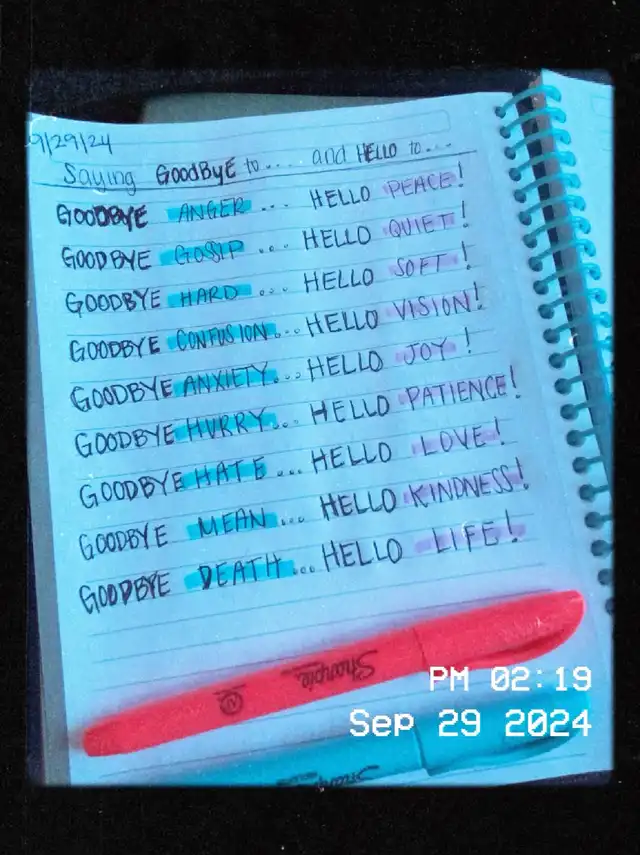 9/29/24
Saying GoodByE to.... and HELLO to....
GOODBYE ANGER... HELLO PEACE!
GOODBYE GOSSIP .... HELLO QUIET!
GOODBYE HARD .... HELLO SOFT!
GOODBYE CONFUSION... HELLO VISION!
GOODBYE ANXIETY... HELLO JOY!
GOODBYE HURRY... HELLO PATIENCE!
GOODBYE HATE ... HELLO LOVE!
GOODBYE MEAN ... HELLO KINDNESS!
GOODBYE DEATH... HELLO LIFE!
Sharpie
PM 02:19
Sep 29 2024
Sharpie